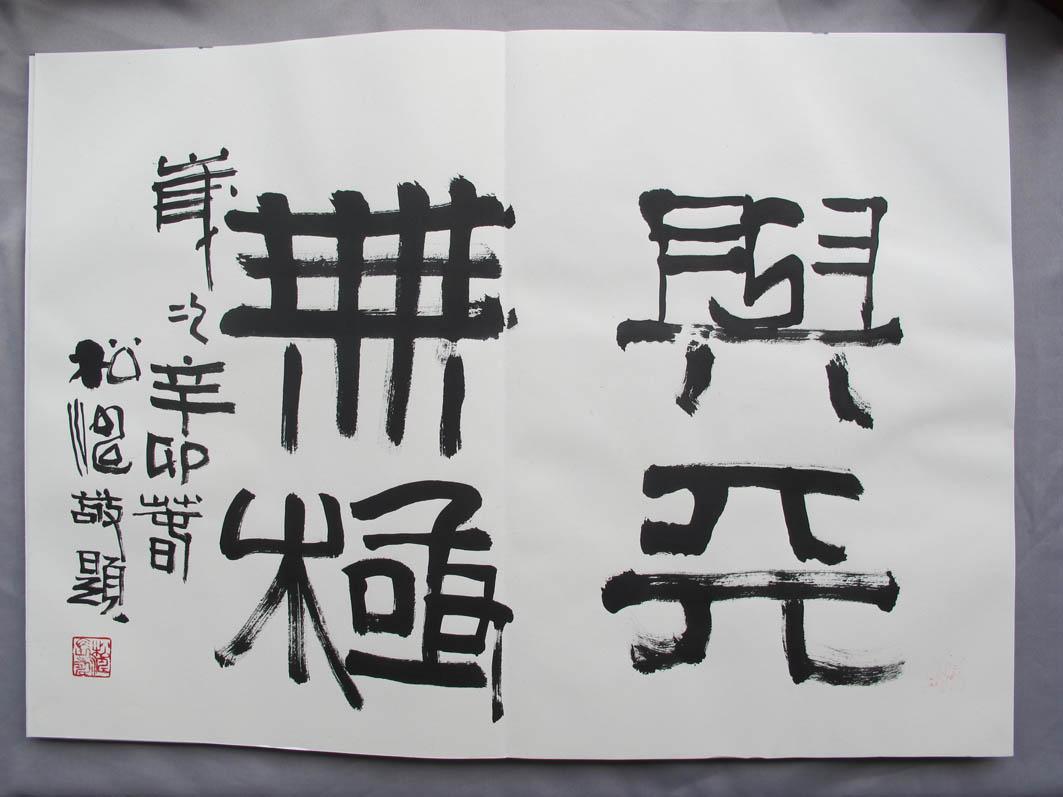 與天
無極
歲次辛卯春
松温敬題